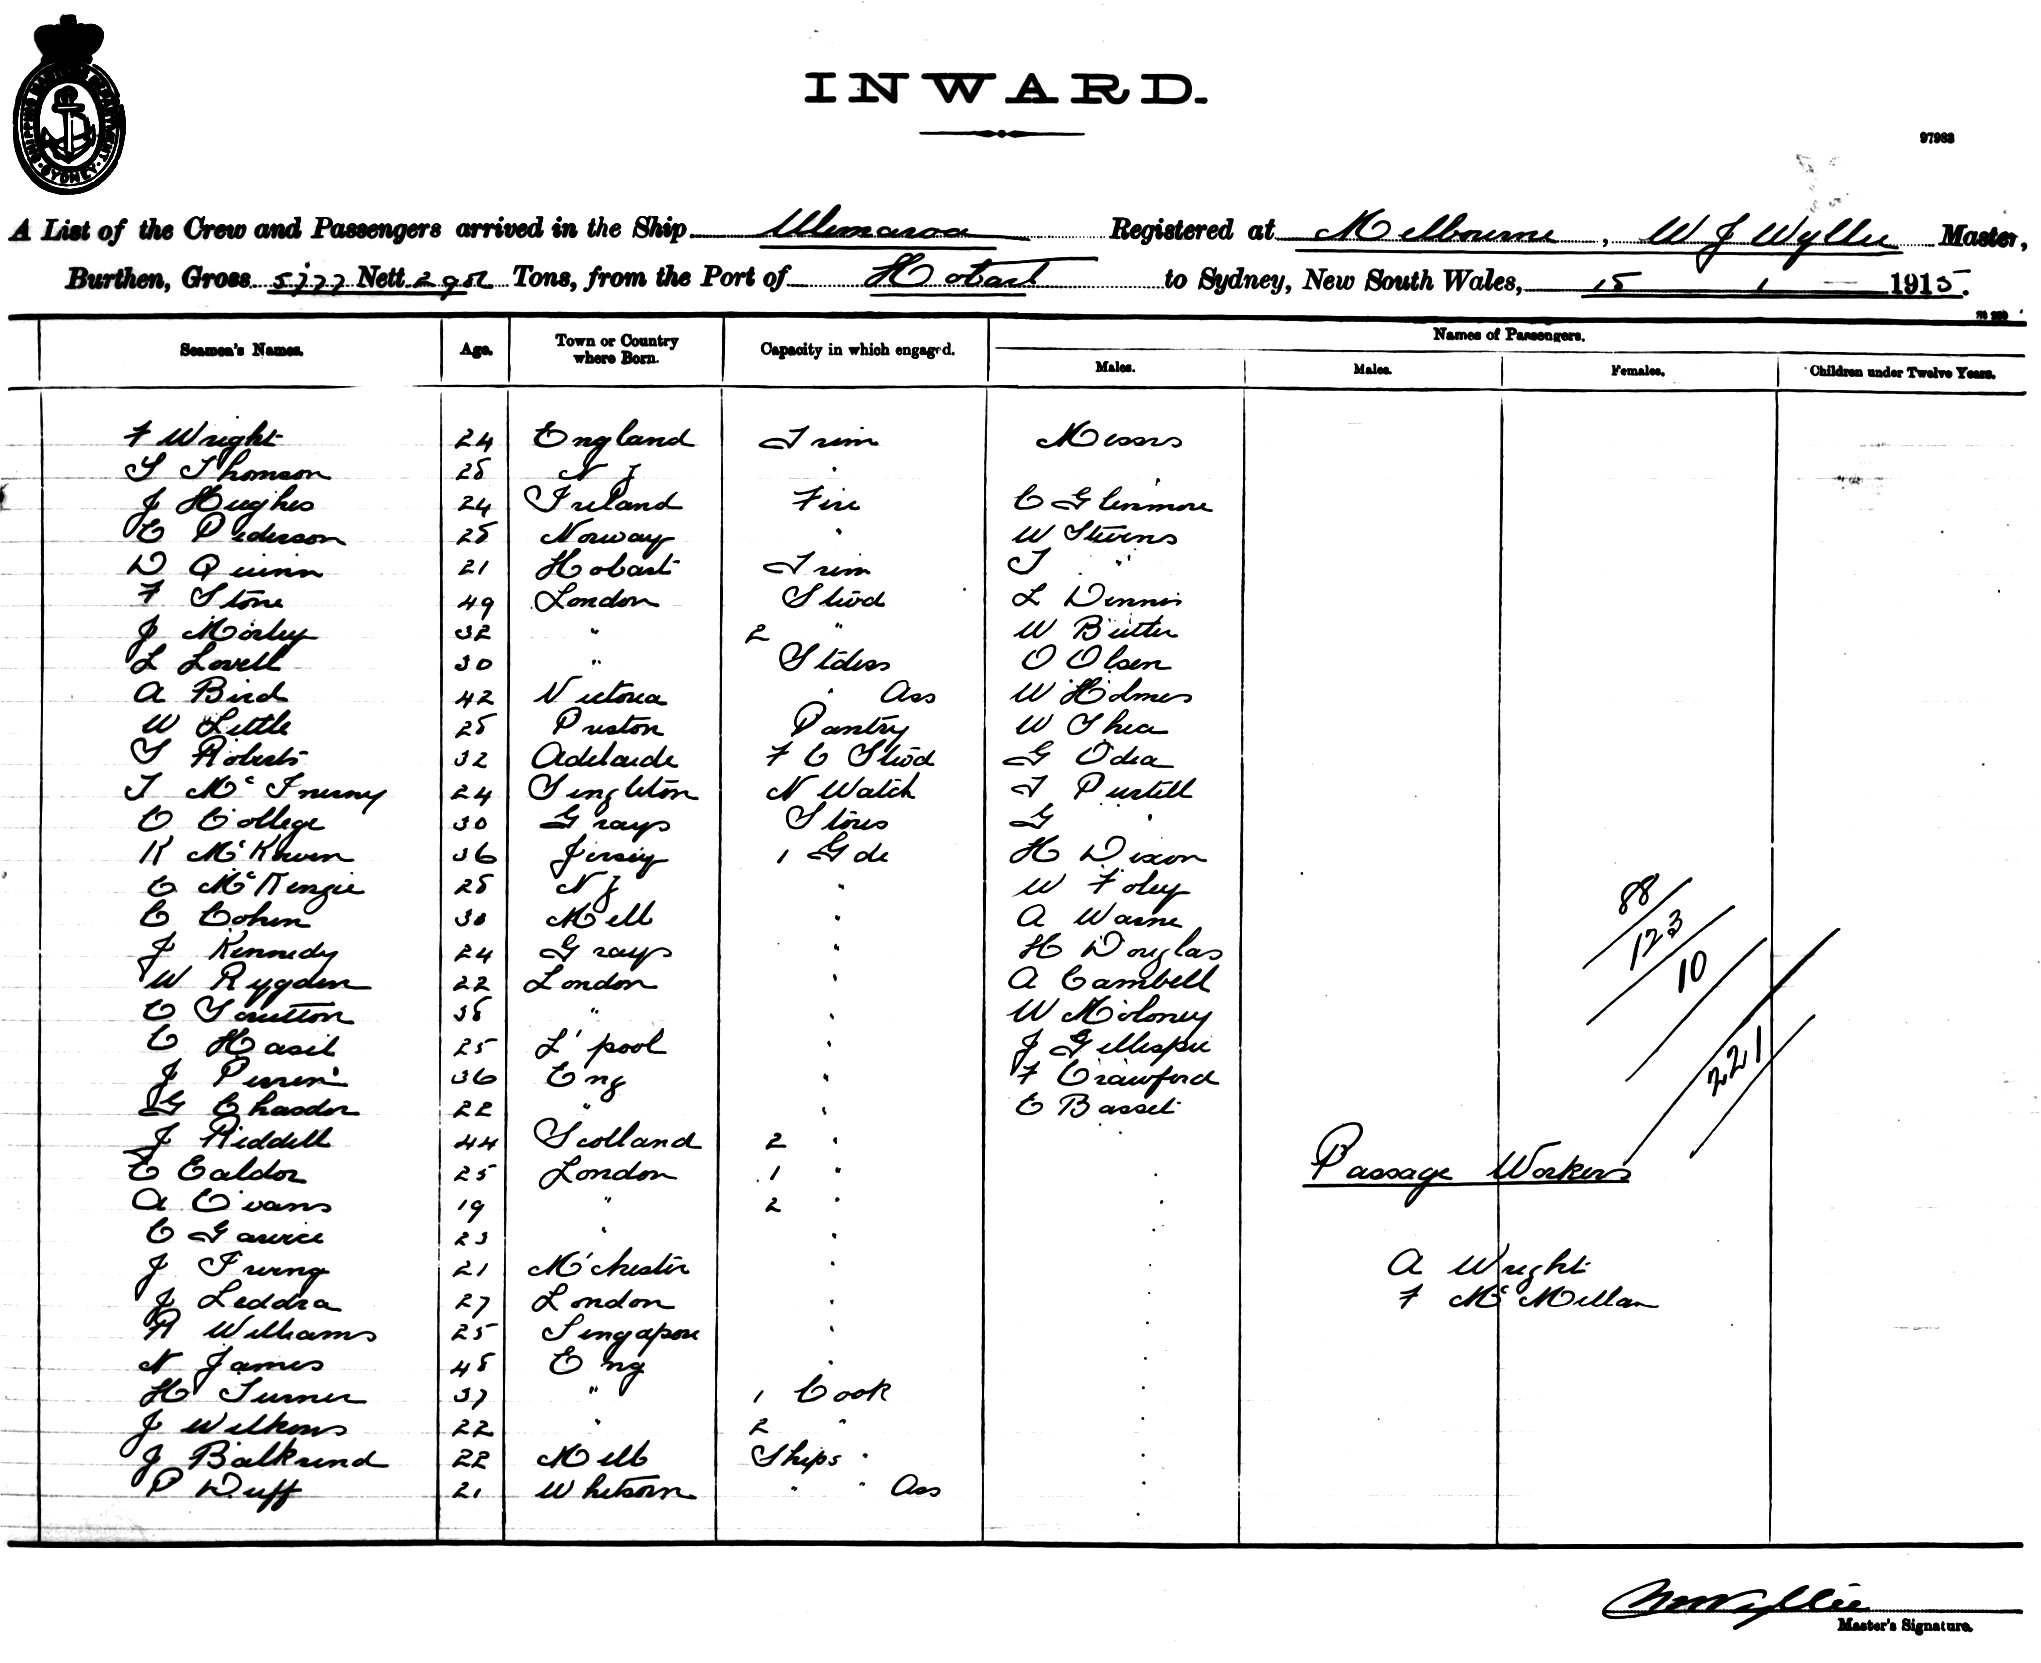 SHIPPING MASTER'S DEPARTMENT SYDNEY
INWARD.
97983
A List of the Crew and Passengers arrived in the Ship Ulimaroa Registered at Melbourne, W J Wyllie Master,
Burthen, Gross 5777 Nett Tons, from the Port of Hobart to Sydney, New South Wales, 15 1 1915.
Names of Passengers.
Seamen's Names. Age. Town or Country where Born. Capacity in which engaged. Males. Males. Females. Children under Twelve Years.
F Wright 24 England Trim Messrs
S Thomson 28 N Z "
J Hughes 24 Ireland Fire C Glenmore
C Pederson 28 Norway " W Stevens
D Quinn 21 Hobart Trim T "
F Stone 49 London Stwd L Dennis
J Morley 32 " 2 " W Butler
L Lovell 30 " Stdess O Olsen
A Bird 42 Victoria " Ass W Holmes
W Little 28 Preston Pantry W Shea
S Roberts 32 Adelaide F C Stwd G Odea
T McInerny 24 Singleton N Watch T Purtill
C College 30 Grays Stores G "
K McKwen 36 Jersey 1 Gde H Dixon
C McKenzie 28 N Z " W Foley
C Cohen 30 Melb " A Warne
J Kennedy 24 Grays " H Douglas
W Rygden 22 London " A Cambell
C Scutton 38 " " W Moloney
C Hasil 25 L'pool " J Gillespie
J Perren 36 Eng " F Crawford
G Chasdor 22 " " C Basset
J Riddell 44 Scotland 2 "
C Ealdor 25 London 1 "
A Evans 19 " 2 "
C Garvice 23 " "
J Irving 21 M'chester "
J Leddra 27 London "
R Williams 25 Singapore "
N James 48 Eng "
H Turner 37 " 1 Cook
J Wilkens 22 " 2 "
J Balkrend 22 Melb Ships "
P Duff 21 " " Ass
88
123
10
221
Passage Workers
A Wright
F McMillan
W J Wyllie
Master's Signature.